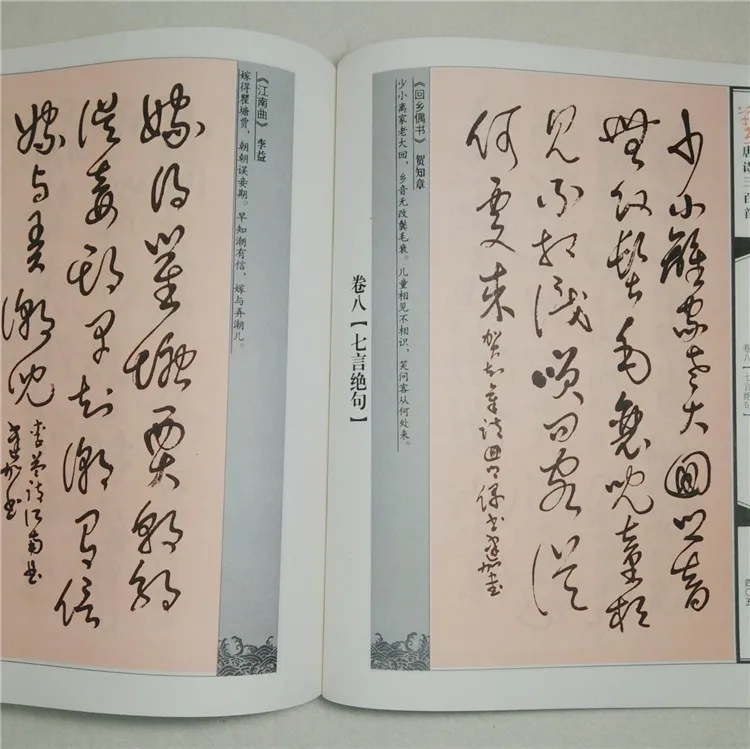 唐诗三百首
卷八【七言绝句】
四〇五
少小離家老大回乡音
無改鬢毛衰儿童相
見不相識笑问客從
何處来
《回乡偶书》 贺知章
少小离家老大回，乡音无改鬓毛衰。儿童相见不相识，笑问客从何处来。
卷八【七言绝句】
《江南曲》 李益
嫁得瞿塘贾，朝朝误妾期。早知潮有信，嫁与弄潮儿。
嫁得瞿塘賈朝朝
误妾期早知潮有信
嫁与弄潮兒
李益诗江南曲